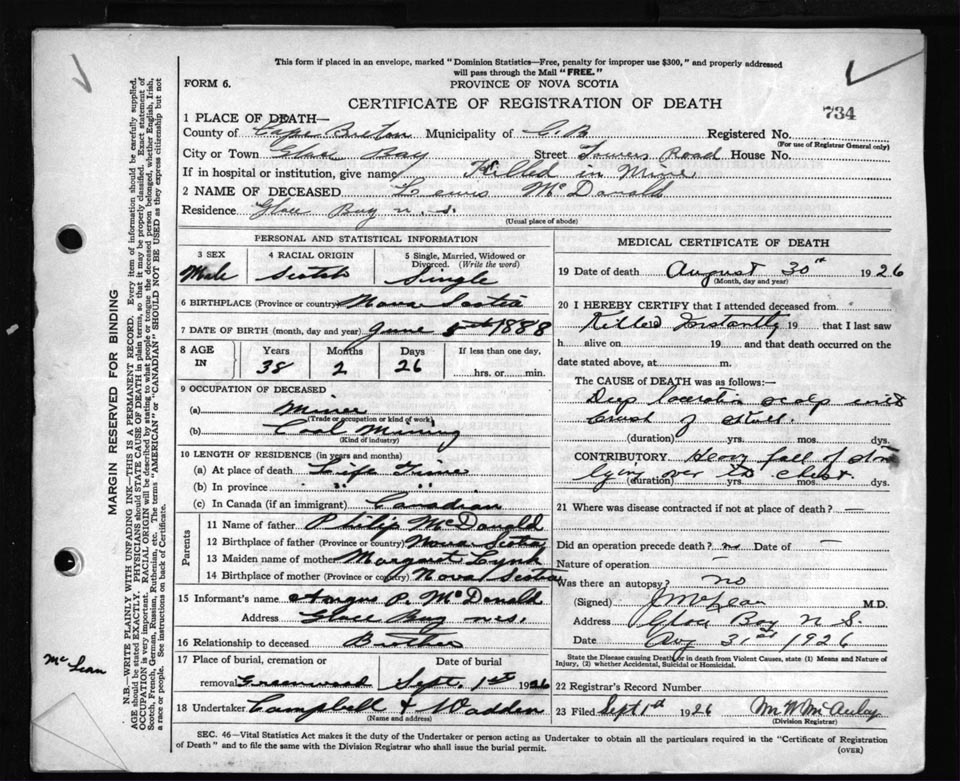 This form if placed in an envelope, marked "Dominion Statistics—Free, penalty for improper use $300," and properly addressed
will pass through the Mail "FREE."
FORM 6.
PROVINCE OF NOVA SCOTIA
CERTIFICATE OF REGISTRATION OF DEATH
734
1 PLACE OF DEATH—
County of Cape Breton Municipality of C.B. Registered No.
(For use of Registrar General only)
City or Town Glace Bay Street Towers Road House No.
If in hospital or institution, give name Killed in Mine
2 NAME OF DECEASED Lewis McDonald
Residence Glace Bay N.S.
(Usual place of abode)
PERSONAL AND STATISTICAL INFORMATION
3 SEX
Male
4 RACIAL ORIGIN
Scotch
5 Single, Married, Widowed or
Divorced. (Write the word)
Single
6 BIRTHPLACE (Province or country) Nova Scotia
7 DATE OF BIRTH (month, day and year) June 5th 1888
8 AGE IN
Years Months Days If less than one day,
38 2 26 hrs. or min.
9 OCCUPATION OF DECEASED
(a) Miner
(Trade or occupation or kind of work)
(b) Coal Mining
(Kind of industry)
10 LENGTH OF RESIDENCE (in years and months)
(a) At place of death Life time
(b) In province " "
(c) In Canada (if an immigrant) Canadian
Parents
11 Name of father Philip McDonald
12 Birthplace of father (Province or country) Nova Scotia
13 Maiden name of mother Margaret Lynk
14 Birthplace of mother (Province or country) Nova Scotia
15 Informant's name Angus P. McDonald
Address Glace Bay N.S.
16 Relationship to deceased Brother
17 Place of burial, cremation or Date of burial
removal Greenwood Sept. 1st 1926
18 Undertaker Campbell & Wadden
(Name and address)
MEDICAL CERTIFICATE OF DEATH
19 Date of death August 30th 1926
(Month, day and year)
20 I HEREBY CERTIFY that I attended deceased from
Killed Instantly 19 that I last saw
h alive on 19 and that death occurred on the
date stated above, at m.
The CAUSE of DEATH was as follows:—
Deep laceration scalp with
crush of skull.
(duration) yrs. mos. dys.
CONTRIBUTORY Heavy fall of stone
lying over to chest.
(duration) yrs. mos. dys.
21 Where was disease contracted if not at place of death? —
Did an operation precede death? no Date of —
Nature of operation —
Was there an autopsy? no
(Signed) J McLean M.D.
Address Glace Bay N S.
Date Aug 31st 1926
State the Disease causing Death or in death from Violent Causes, state (1) Means and Nature of
Injury, (2) whether Accidental, Suicidal or Homicidal.
22 Registrar's Record Number
23 Filed Sept 1st 1926 M W McAulay
(Division Registrar)
SEC. 46—Vital Statistics Act makes it the duty of the Undertaker or person acting as Undertaker to obtain all the particulars required in the "Certificate of Registration
of Death" and to file the same with the Division Registrar who shall issue the burial permit.
(OVER)
MARGIN RESERVED FOR BINDING
N.B.—WRITE PLAINLY WITH UNFADING INK—THIS IS A PERMANENT RECORD. Every item of information should be carefully supplied.
AGE should be stated EXACTLY. PHYSICIANS should STATE CAUSE OF DEATH in plain terms, so that it may be properly classified. Exact statement of
OCCUPATION is very important. RACIAL ORIGIN will be described by stating to what people or tongue the deceased person belonged, whether English, Irish,
Scotch, French, German, Russian, Ruthenian, etc. The terms "AMERICAN" or "CANADIAN" SHOULD NOT BE USED as they express citizenship but not
a race or people. See instructions on back of Certificate.
McLean